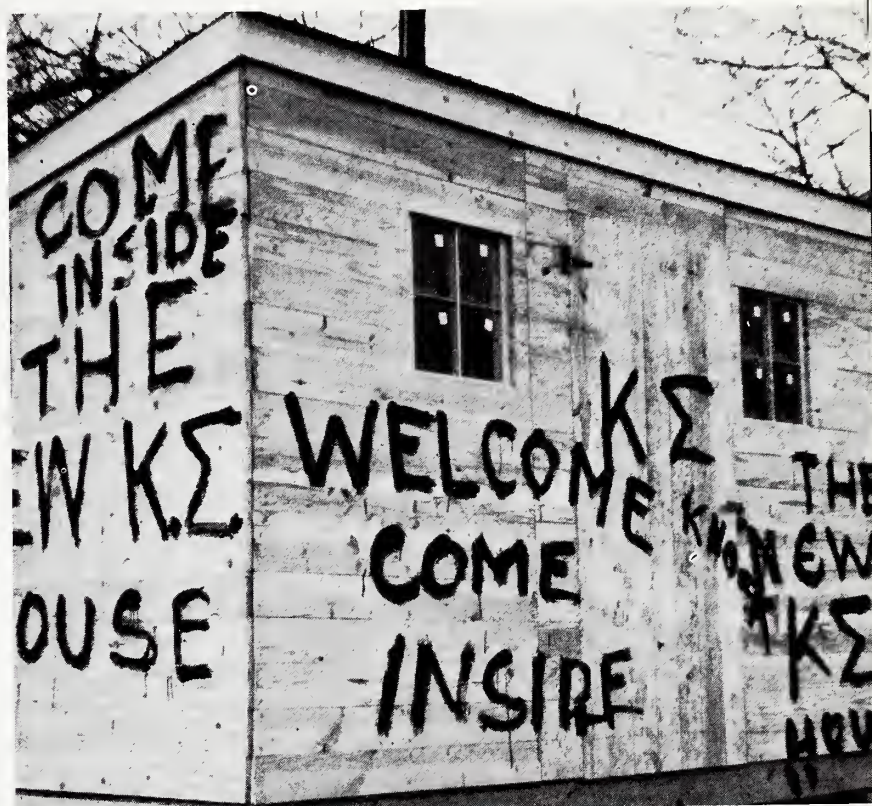 COME
INSIDE
THE
EW ΚΣ
OUSE
ΚΣ
WELCOME
COME
INSIDE
KNOCK
THE
NEW
ΚΣ
HOU